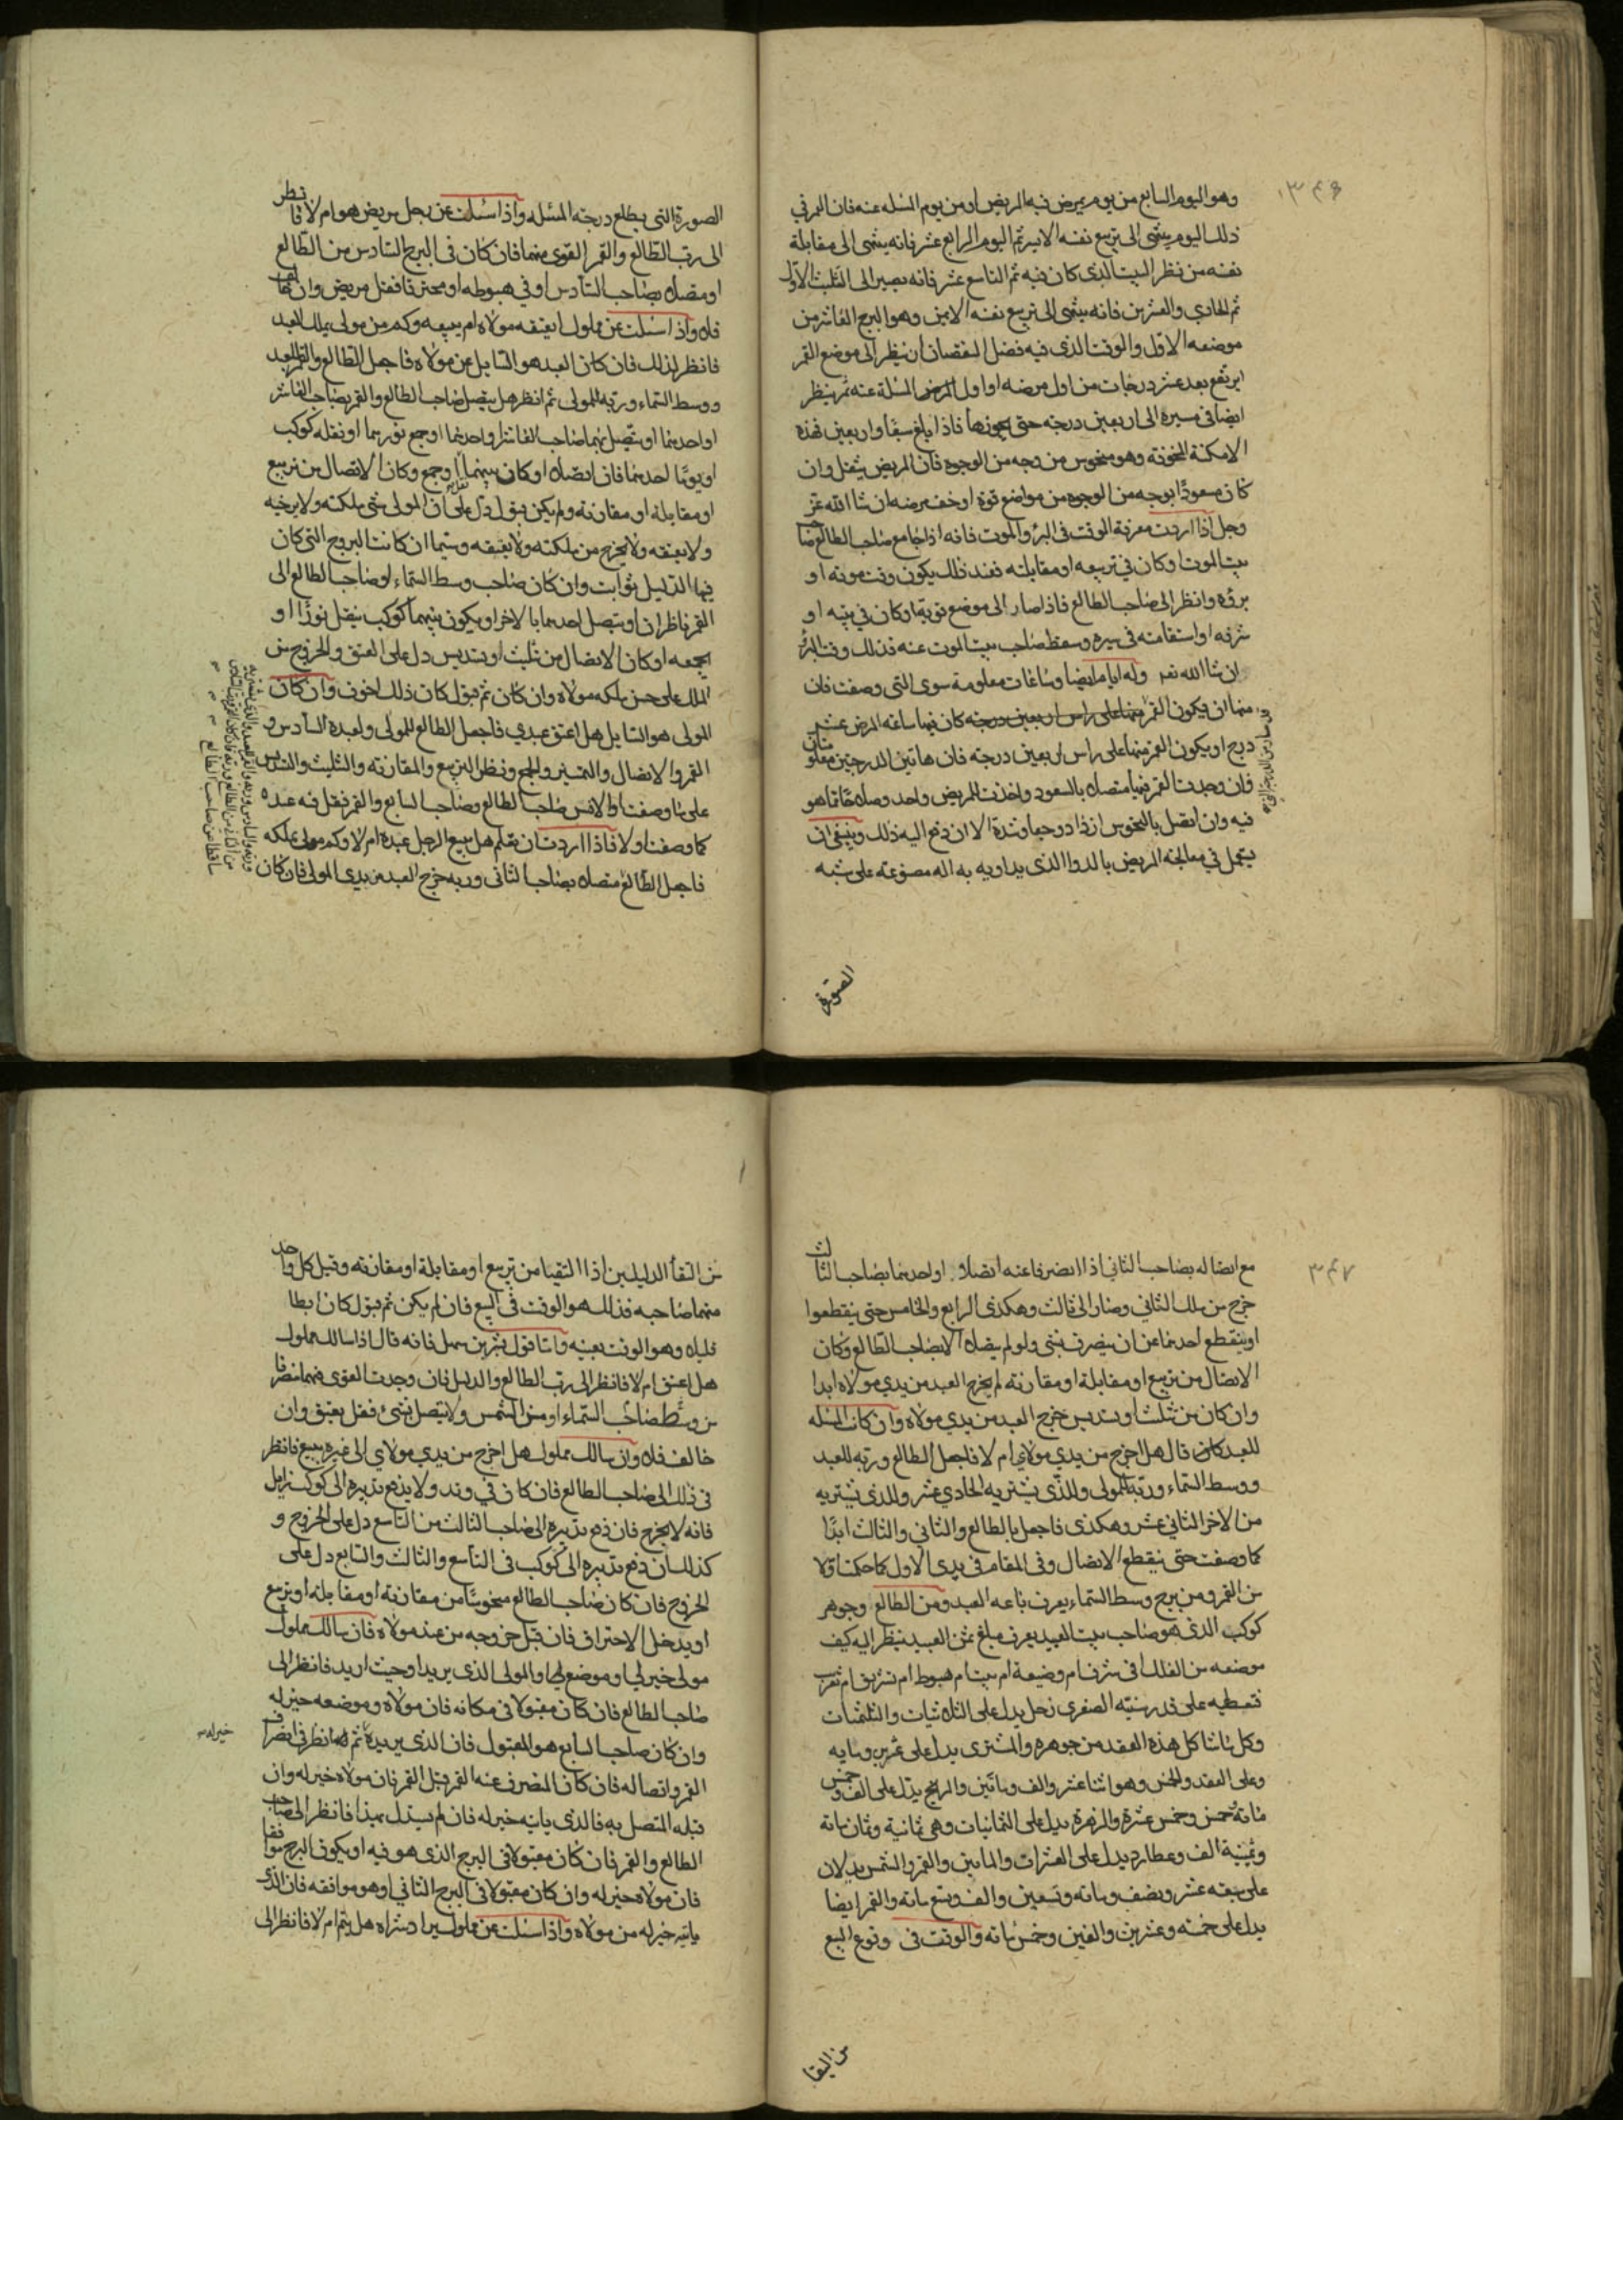 ٣٤٦
وهو اليوم السابع من يوم يمرض فيه المريض او من يوم المسله عنه فان القمر في
ذلك اليوم ينتهى الى تربيع نفسه الايسر ثم اليوم الرابع عشر فانه ينتهى الى مقابلة
نفسه من نظر البيت الذى كان فيه ثم التاسع عشر فانه يصير الى التثليث الاول
ثم الحادي والعشرين فانه ينتهى الى تربيع نفسه الايمن وهو البرج العاشر من
موضعه الاول والوقت الذى فيه فضل النقصان ان ينظر الى موضع القمر
اين يقع بعد عشر درجات من اول مرضه او اول المسئلة عنه ثم ينظر
ايضا في مسيره الى اربعين درجه حتى فاذا بلغ سبعا واربعين فهذه
الامكنة المخوفة وهو منحوس من وجه من الوجوه فان المريض يثقل وان
كان مسعودا بوجه من الوجوه من مواضع قوة اوخف مرضه ان شا الله عز
وجل اذا اردت معرفة الوقت فى البرؤ والموت فانه اذا جامع صاحب الطالع صاحب
بيت الموت اوكان في تربيعه او مقابلته فعند ذلك يكون وقت موته او
برؤه وانظر الى صاحب الطالع فاذا صار الى موضع قوية اوكان في بيته او
شرفه او استقامته في سيره وسقط صاحب بيت الموت عنه فذلك وقت البرؤ
ان شا الله تعه وله ايام ايضا وساعات معلومة سوى التى وصفت فان
منها ان يكون القمر منها على راس اربعين درجه كان فيها ساعة المرض عشر
درج او يكون القمر منها على راس اربعين درجه فان هاتين الدرجتين معلومتان
فان وجدت القمر فيها متصلا بالسعود واخذت المريض واحد وصلاحا مما هو
فيه وان اتصل بالنحوس ازداد وجعا وشدة الا ان دفع اليه ذلك وينبغي ان
يتحمل في معالجة المريض بالدوا الذى يداويه به اله مصنوعة على شبه
الصورة
الصورة التى يطلع درجته المسئله واذا سئلت عن رجل مريض هو ام لا فانظر
الى رب الطالع والقمر القوى منهما فان كان فى البرج السادس من الطالع
او متصلا بصاحب السادس او في هبوطه او محترقا فقل مريض وان خالف
فلا واذا سئلت عن مملوك ايعتقه مولاه ام يبيعه وكم من مولى يملك العبد
فانظر لذلك فان كان العبد هو السايل عن مولاه فاجعل الطالع والقمر للعبد
ووسط السماء وربه للمولى ثم انظر هل يتصل صاحب الطالع والقمر بصاحب العاشر
او احدهما او يتصل بهما صاحب العاشر او احدهما او جمع نورهما او نقله كوكب
او يوما احدهما فان اتصلا او كان بينهما وجمع وكان الاتصال من تربيع
او مقابله او مقارنه ولم يكن يقبل دل على ان المولى شي ملكته ولا يرخيه
ولا يعتقه ولا يخرج من ملكته ولا يعتقه وسيما ان كانت البروج التى كان
فيها الدليل ثوابت وان كان صاحب وسط السماء او صاحب الطالع الى
القمر ناظران او يتصل احدهما بالاخر او يكون بينهما كوكب ينقل نورا او
يجمعه او كان الاتصال من تثليث او تسديس دل على العتق والخروج من
الملك على حسن ملكه مولاه وان كان ثم قبول كان ذلك اخوف وان كان
المولى هو السايل هل اعتق عبدي فاجعل الطالع للمولى ولعبده السادس و
القمر والاتصال والتسيير والجمع ونظر التربيع والمقارنه والتثليث والتسديس
على ما وصفت والا فتس صاحب الطالع وصاحب السابع والقمر فقل فيه عنده
كما وصفت اولا فاذا اردت ان تعلم هل يبيع الرجل عبده ام لا وكم مولى يملكه
فاجعل الطالع متصلا بصاحب الثانى وربه خرج العبد من يدى المولى فان كان
٣٤٧
مع اتصاله بصاحب الثانى اذا انصرفا عنه اتصلا او احدهما بصاحب الثالث
خرج من ملك الثاني وصار الى ثالث وهكذى الرابع والخامس حتى ينقطعوا
او ينقطع احدهما عن ان ينصرف بشى ولو لم يتصلا الا بصاحب الطالع وكان
الاتصال من تربيع او مقابلة او مقارنه لم يخرج العبد من يدي مولاه ابدا
وان كان من تثليث او تسديس خرج العبد من يدي مولاه وان كان المسله
للعبد كان قال هل اخرج من يدي مولاي ام لا فاجعل الطالع وربه للعبد
ووسط السماء وربه للمولى وللذى يشتريه الحادي عشر وللذى يشتريه
من الاخر الثانى عشر وهكذى فاجعل بالطالع والثاني والثالث ابدا
كما وصفت حتى ينقطع الاتصال وفى المقام فى يدى الاول كما حكمت اولا
من القمر ومن برج وسط السماء يعرف باعه العبد ومن الطالع وجوهر
كوكب الذى هو صاحب بيت العبيد يعرف مبلغ ثمن العبيد ينظر اليه كيف
موضعه من الفلك افى شرف ام وضيعة ام بيت ام هبوط ام تشريق ام تغريب
فتعطيه على قدر سنيه الصغرى زحل يدل على الثلاثيات والثلثمات
وكل ما شاكل هذه العقد من جوهره والمشترى يدل على عشرين ومايه
وعلى العقد والخمس وهو اثنا عشر والف وماتين والمريخ يدل على الف وخمس
مائة وخمس وخمس عشرة والزهرة يدل على الثمانيات وهى ثمانية وثمان مائة
وثمنية الف وعطارد يدل على العشرات والمايتين والقمر والشمس يدلان
على سبعه عشر ونصف ومائه وتسعين والف وتسع مائه والقمر ايضا
يدل على خمسه وعشرين والفين وخمس مائه والوقت فى وقوع البيع
من التقا
من التقأ الدليلين اذا التقيا من تربيع او مقابلة او مقارنته وقبل كل واحد
منهما صاحبه فذلك هو الوقت فى البيع فان لم يكن ثم قبول كان ابطا
قليلا وهو الوقت بعينه واما قول بشر بن سهل فانه قال اذا سالك مملوك
هل اعتق ام لا فانظر الى رب الطالع والدليل فان وجدت القوى منهما منصرفا
من وسط صاحب السماء او من الشمس ولا يتصل بشئ فقل يعتق وان
خالف فلا وان سالك مملوك هل اخرج من يدي مولاي الى غيره ببيع فانظر
فى ذلك الى صاحب الطالع فان كان في وتد ولا يدفع تدبيره الى كوكب زايل
فانه لا يخرج فان دفع تدبيره الى صاحب الثالث من التاسع دل على الخروج و
كذلك ان دفع تدبيره الى كوكب فى التاسع والثالث والسابع دل على
الخروج فان كان صاحب الطالع منحوسا من مقارنته او مقابله او تربيع
او يدخل الاحتراق فان قبل خروجه من عند مولاه فان سالك مملوك
مولى خير لي او موضع لي او المولى الذى يريد او حيث اريد فانظر الى
صاحب الطالع فان كان مقبولا فى مكانه فان مولاه وموضعه خير له
وان كان صاحب السابع هو المقبول فان الذى يريده ثم انظر فى انصراف
خير له
القمر واتصاله فان كان المنصرف عنه القمر قبل القمر فان مولاه خير له وان
قبله المتصل به فالذى ياتيه خير له فان لم يستدل بهذا فانظر الى صاحب
الطالع والقمر فان كان مقبولا فى البرج الذى هو فيه او يكون البرج موافقا
فان مولاه خير له وان كان مقبولا فى البرج الثاني او هو موافقه فان الذى
ياتيه خير له من مولاه واذا سئلت عن مملوك يراد شراه هل يتم ام لا فانظر الى